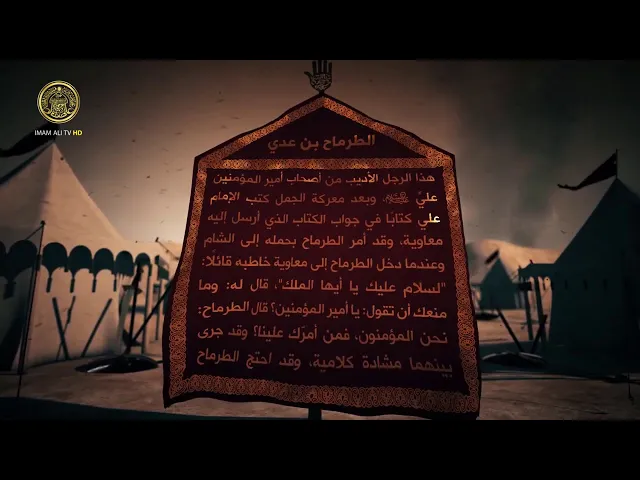 IMAM ALI TV HD
الطرماح بن عدي
هذا الرجل الأديب من أصحاب أمير المؤمنين
عليّ وبعد معركة الجمل كتب الإمام
علي كتابًا في جواب الكتاب الذي أرسل إليه
معاوية، وقد أمر الطرماح بحمله إلى الشام
وعندما دخل الطرماح إلى معاوية خاطبه قائلا:
"لسلام عليك يا أيها الملك"، قال له: وما
منعك أن تقول: يا أمير المؤمنين؟ قال الطرماح:
نحن المؤمنون، فمن أمرك علينا؟ وقد جرى
بينهما مشادة كلامية، وقد احتج الطرماح